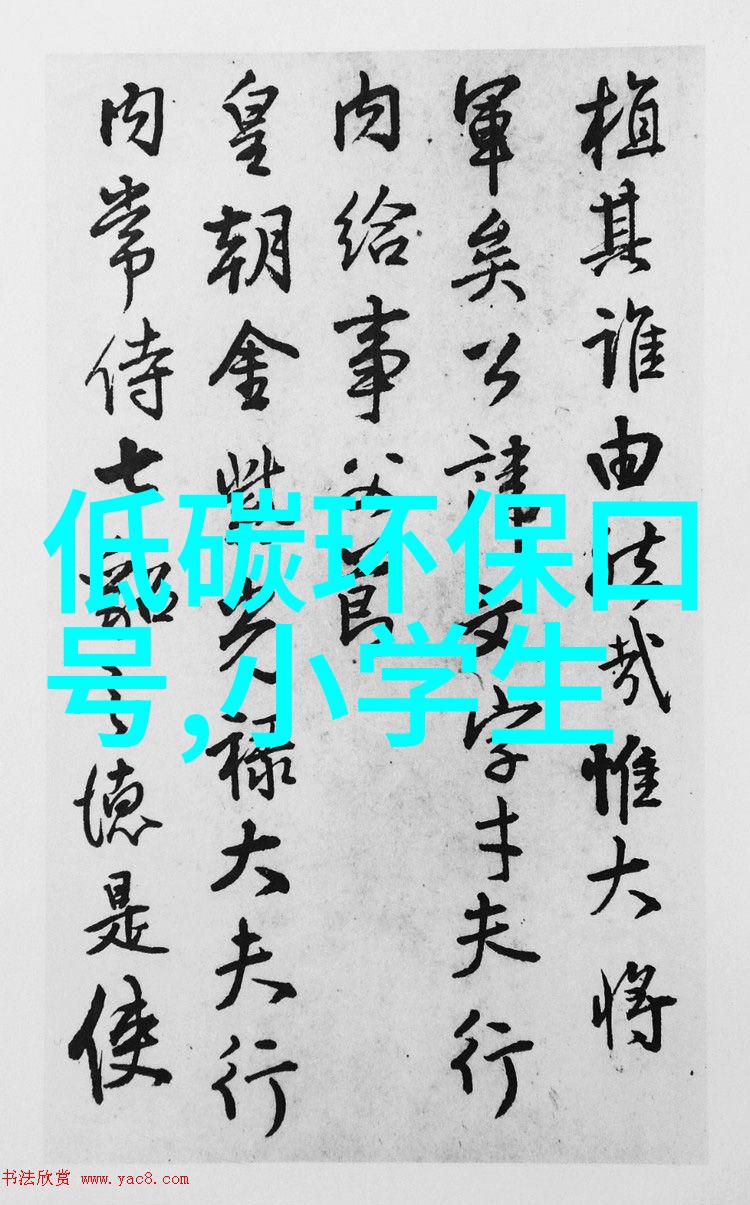 植其誰由哉惟大将
軍矣公諱文字才夫行
内給事父
皇朝金紫光禄大夫行
内常侍七貂之德是使
低碳环保口
号,小学生
书法欣赏 www.yac8.com